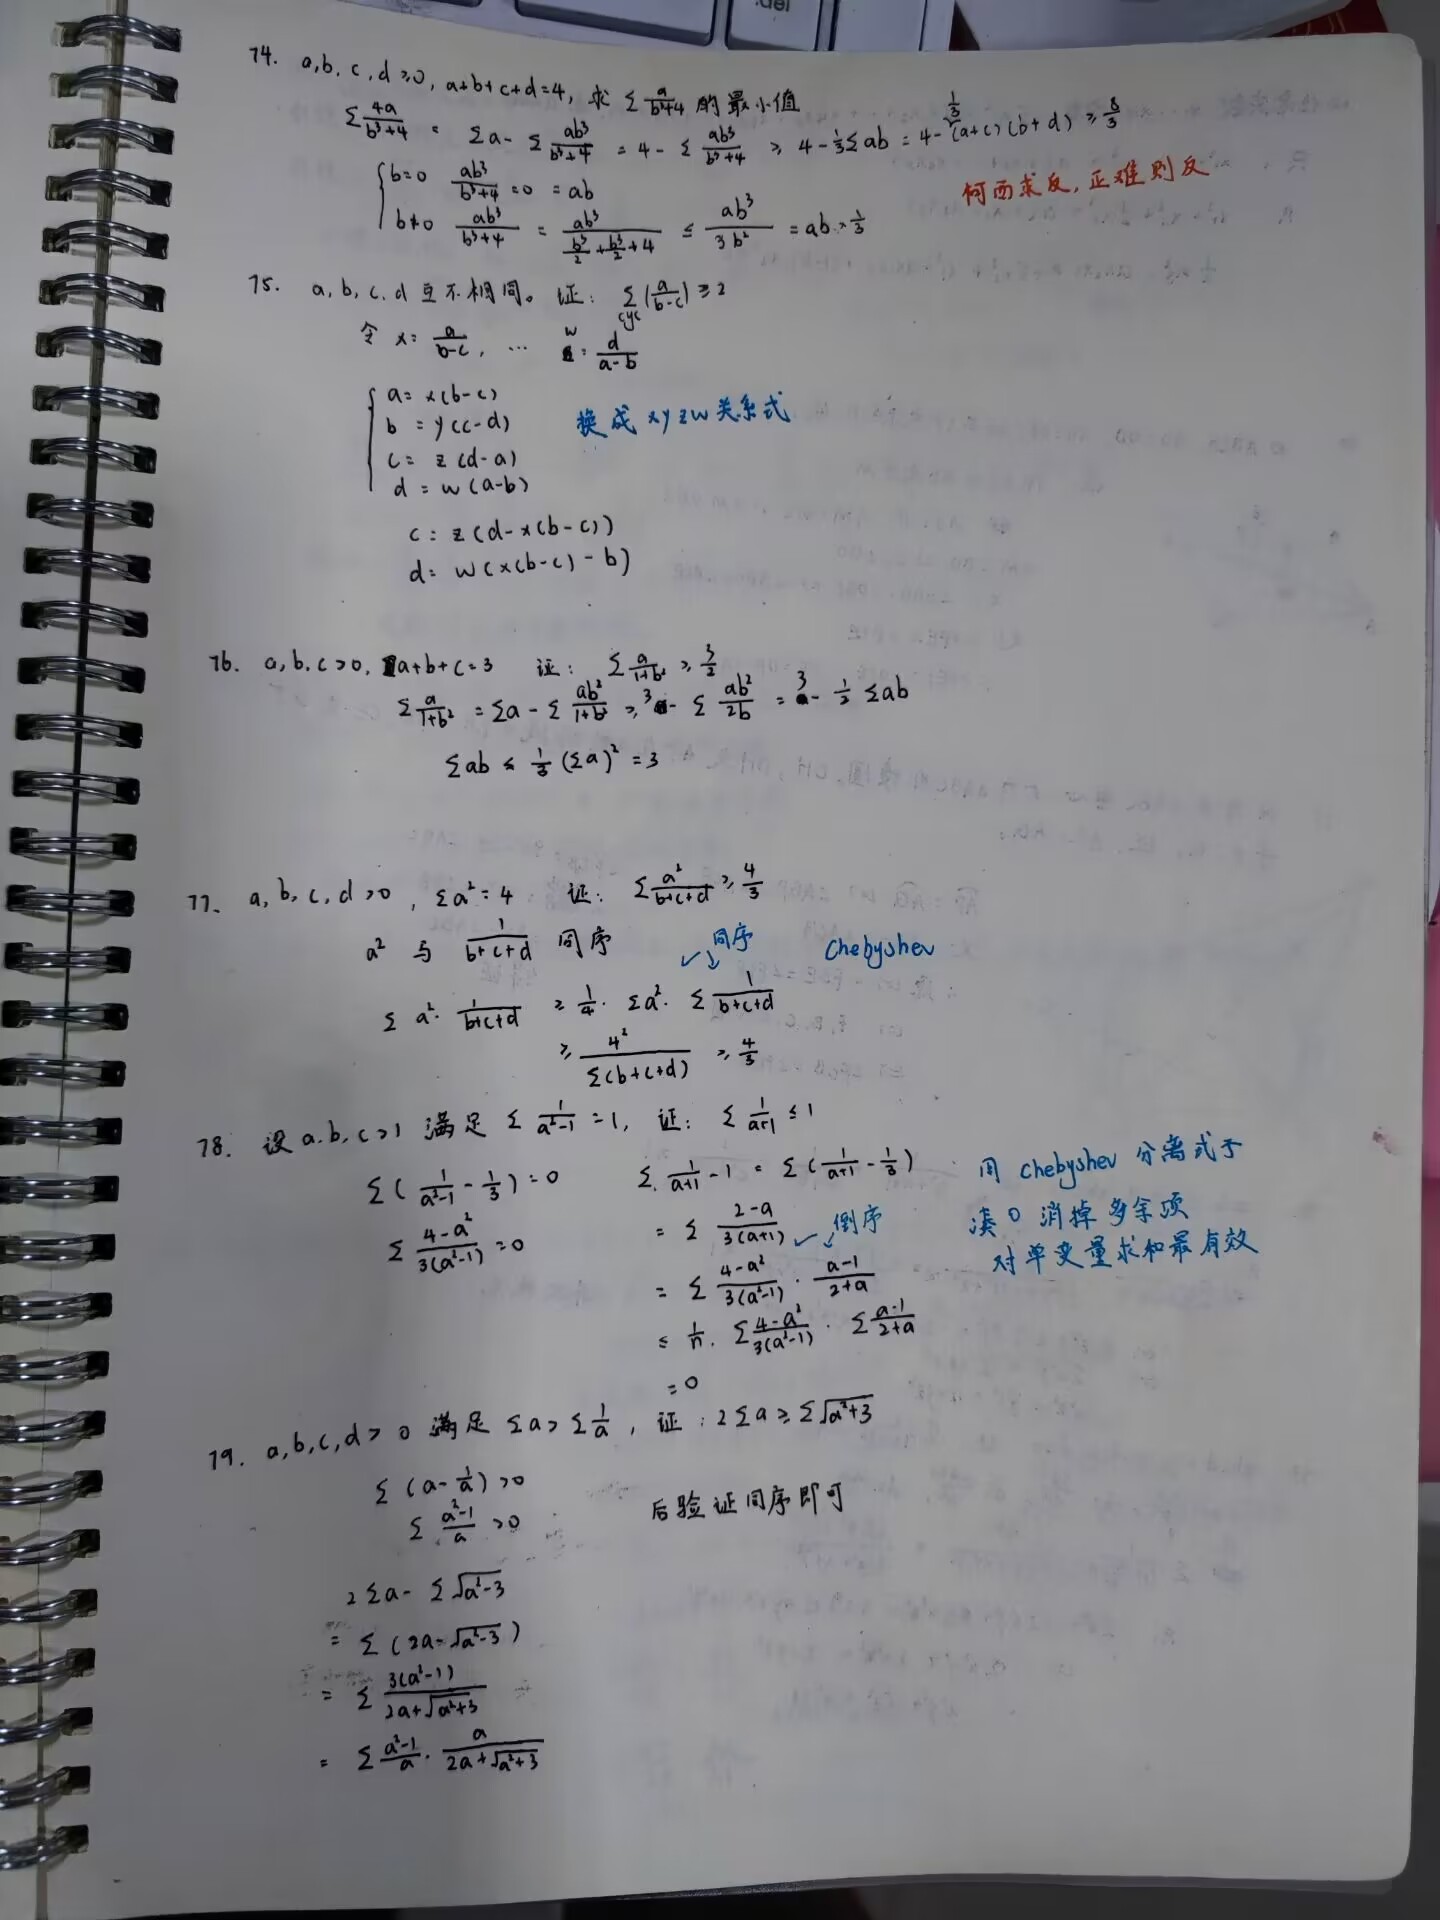 74. a,b,c,d≥0, a+b+c+d=4, 求 Σ a/(b³+4) 的最小值
Σ 4a/(b³+4) = Σa - Σ ab³/(b³+4) = 4 - Σ ab³/(b³+4) ≥ 4 - 1/3 Σab = 4 - 1/3 (a+c)(b+d) ≥ 8/3
{ b=0 ab³/(b³+4) = 0 = ab
b≠0 ab³/(b³+4) = ab³/(b³/2 + b³/2 + 4) ≤ ab³/(3b²) = ab · 1/3
何而求反,正难则反
75. a,b,c,d 互不相同。证: Σcyc (a/(b-c)) ≥ 2
令 x = a/(b-c), … w = d/(a-b)
{ a = x(b-c)
b = y(c-d)
c = z(d-a)
d = w(a-b)
换成xyzw关系式
c = z(d-x(b-c))
d = w(x(b-c)-b)
76. a,b,c>0, a+b+c=3 证: Σ a/(1+b²) ≥ 3/2
Σ a/(1+b²) = Σa - Σ ab²/(1+b²) ≥ 3 - Σ ab²/2b = 3 - 1/2 Σab
Σab ≤ 1/3 (Σa)² = 3
77. a,b,c,d>0, Σa²=4 证: Σ a²/(b+c+d) ≥ 4/3
a² 与 1/(b+c+d) 同序
同序 Chebyshev
Σ a² · 1/(b+c+d) ≥ 1/4 · Σa² · Σ 1/(b+c+d)
≥ 4²/Σ(b+c+d) ≥ 4/3
78. 设 a.b,c>1 满足 Σ 1/(a²-1) = 1, 证: Σ 1/(a+1) ≤ 1
Σ (1/(a²-1) - 1/3) = 0
Σ (4-a²)/3(a²-1) = 0
Σ 1/(a+1) - 1 = Σ (1/(a+1) - 1/3)
= Σ (2-a)/3(a+1)
倒序
= Σ (4-a²)/3(a²-1) · (a-1)/(2+a)
≤ 1/n · Σ (4-a²)/3(a²-1) · Σ (a-1)/(2+a)
= 0
用 Chebyshev 分离式子
凑0 消掉多余项
对单变量求和最有效
79. a,b,c,d>0 满足 Σa > Σ 1/a, 证: 2Σa ≥ Σ√(a²+3)
Σ (a - 1/a) > 0
Σ (a²-1)/a > 0
后验证同序即可
2Σa - Σ√(a²-3)
= Σ (2a-√(a²-3))
= Σ 3(a²-1)/(2a+√(a²+3))
= Σ (a²-1)/a · a/(2a+√(a²+3))